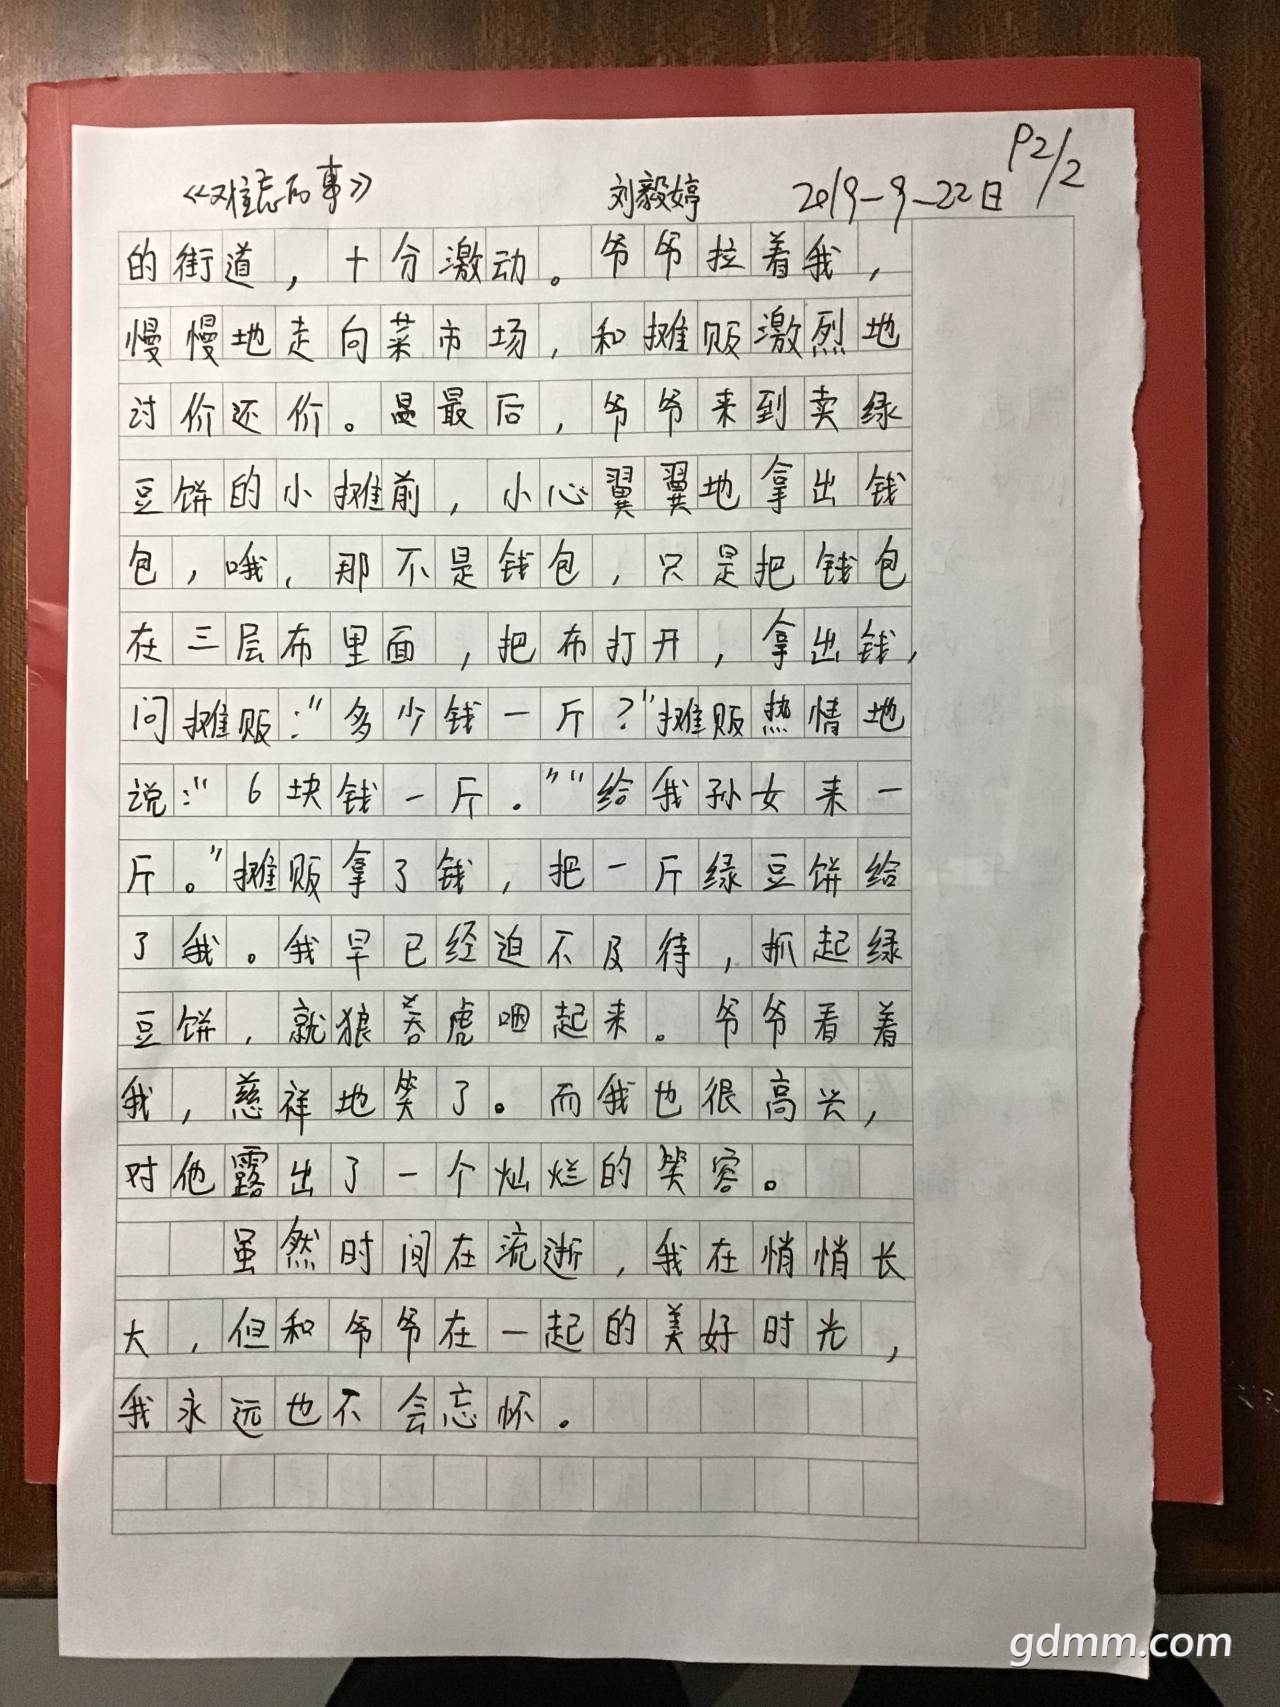 P2/2
《难忘的事》 刘毅婷 2019-9-22日
的街道，十分激动。爷爷拉着我，
慢慢地走向菜市场，和摊贩激烈地
讨价还价。最后，爷爷来到卖绿
豆饼的小摊前，小心翼翼地拿出钱
包，哦，那不是钱包，只是把钱包
在三层布里面，把布打开，拿出钱，
问摊贩："多少钱一斤？"摊贩热情地
说："6块钱一斤."“给我孙女来一
斤。"摊贩拿了钱，把一斤绿豆饼给
了我。我早已经迫不及待，抓起绿
豆饼，就狼吞虎咽起来。爷爷看着
我，慈祥地笑了。而我也很高兴，
对他露出了一个灿烂的笑容。
虽然时间在流逝，我在悄悄长
大，但和爷爷在一起的美好时光，
我永远也不会忘怀.
gdmm.com